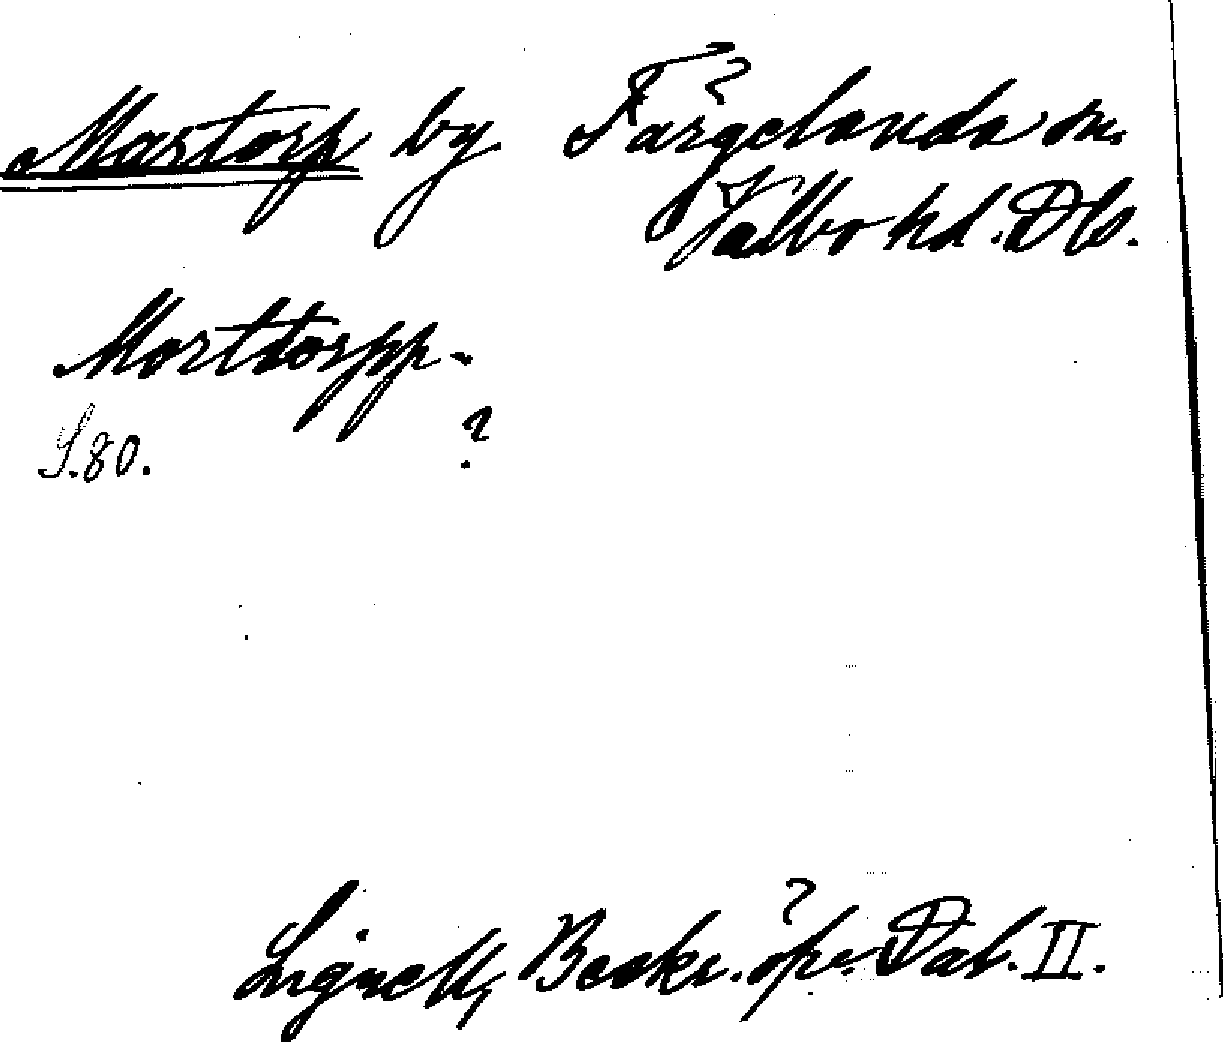 Mastorp by Färgelanda sn.
Valbo hd. Dls.
Morttorpp.
S.80. ?
Lignell, Beskr. öfr. Dal. II.